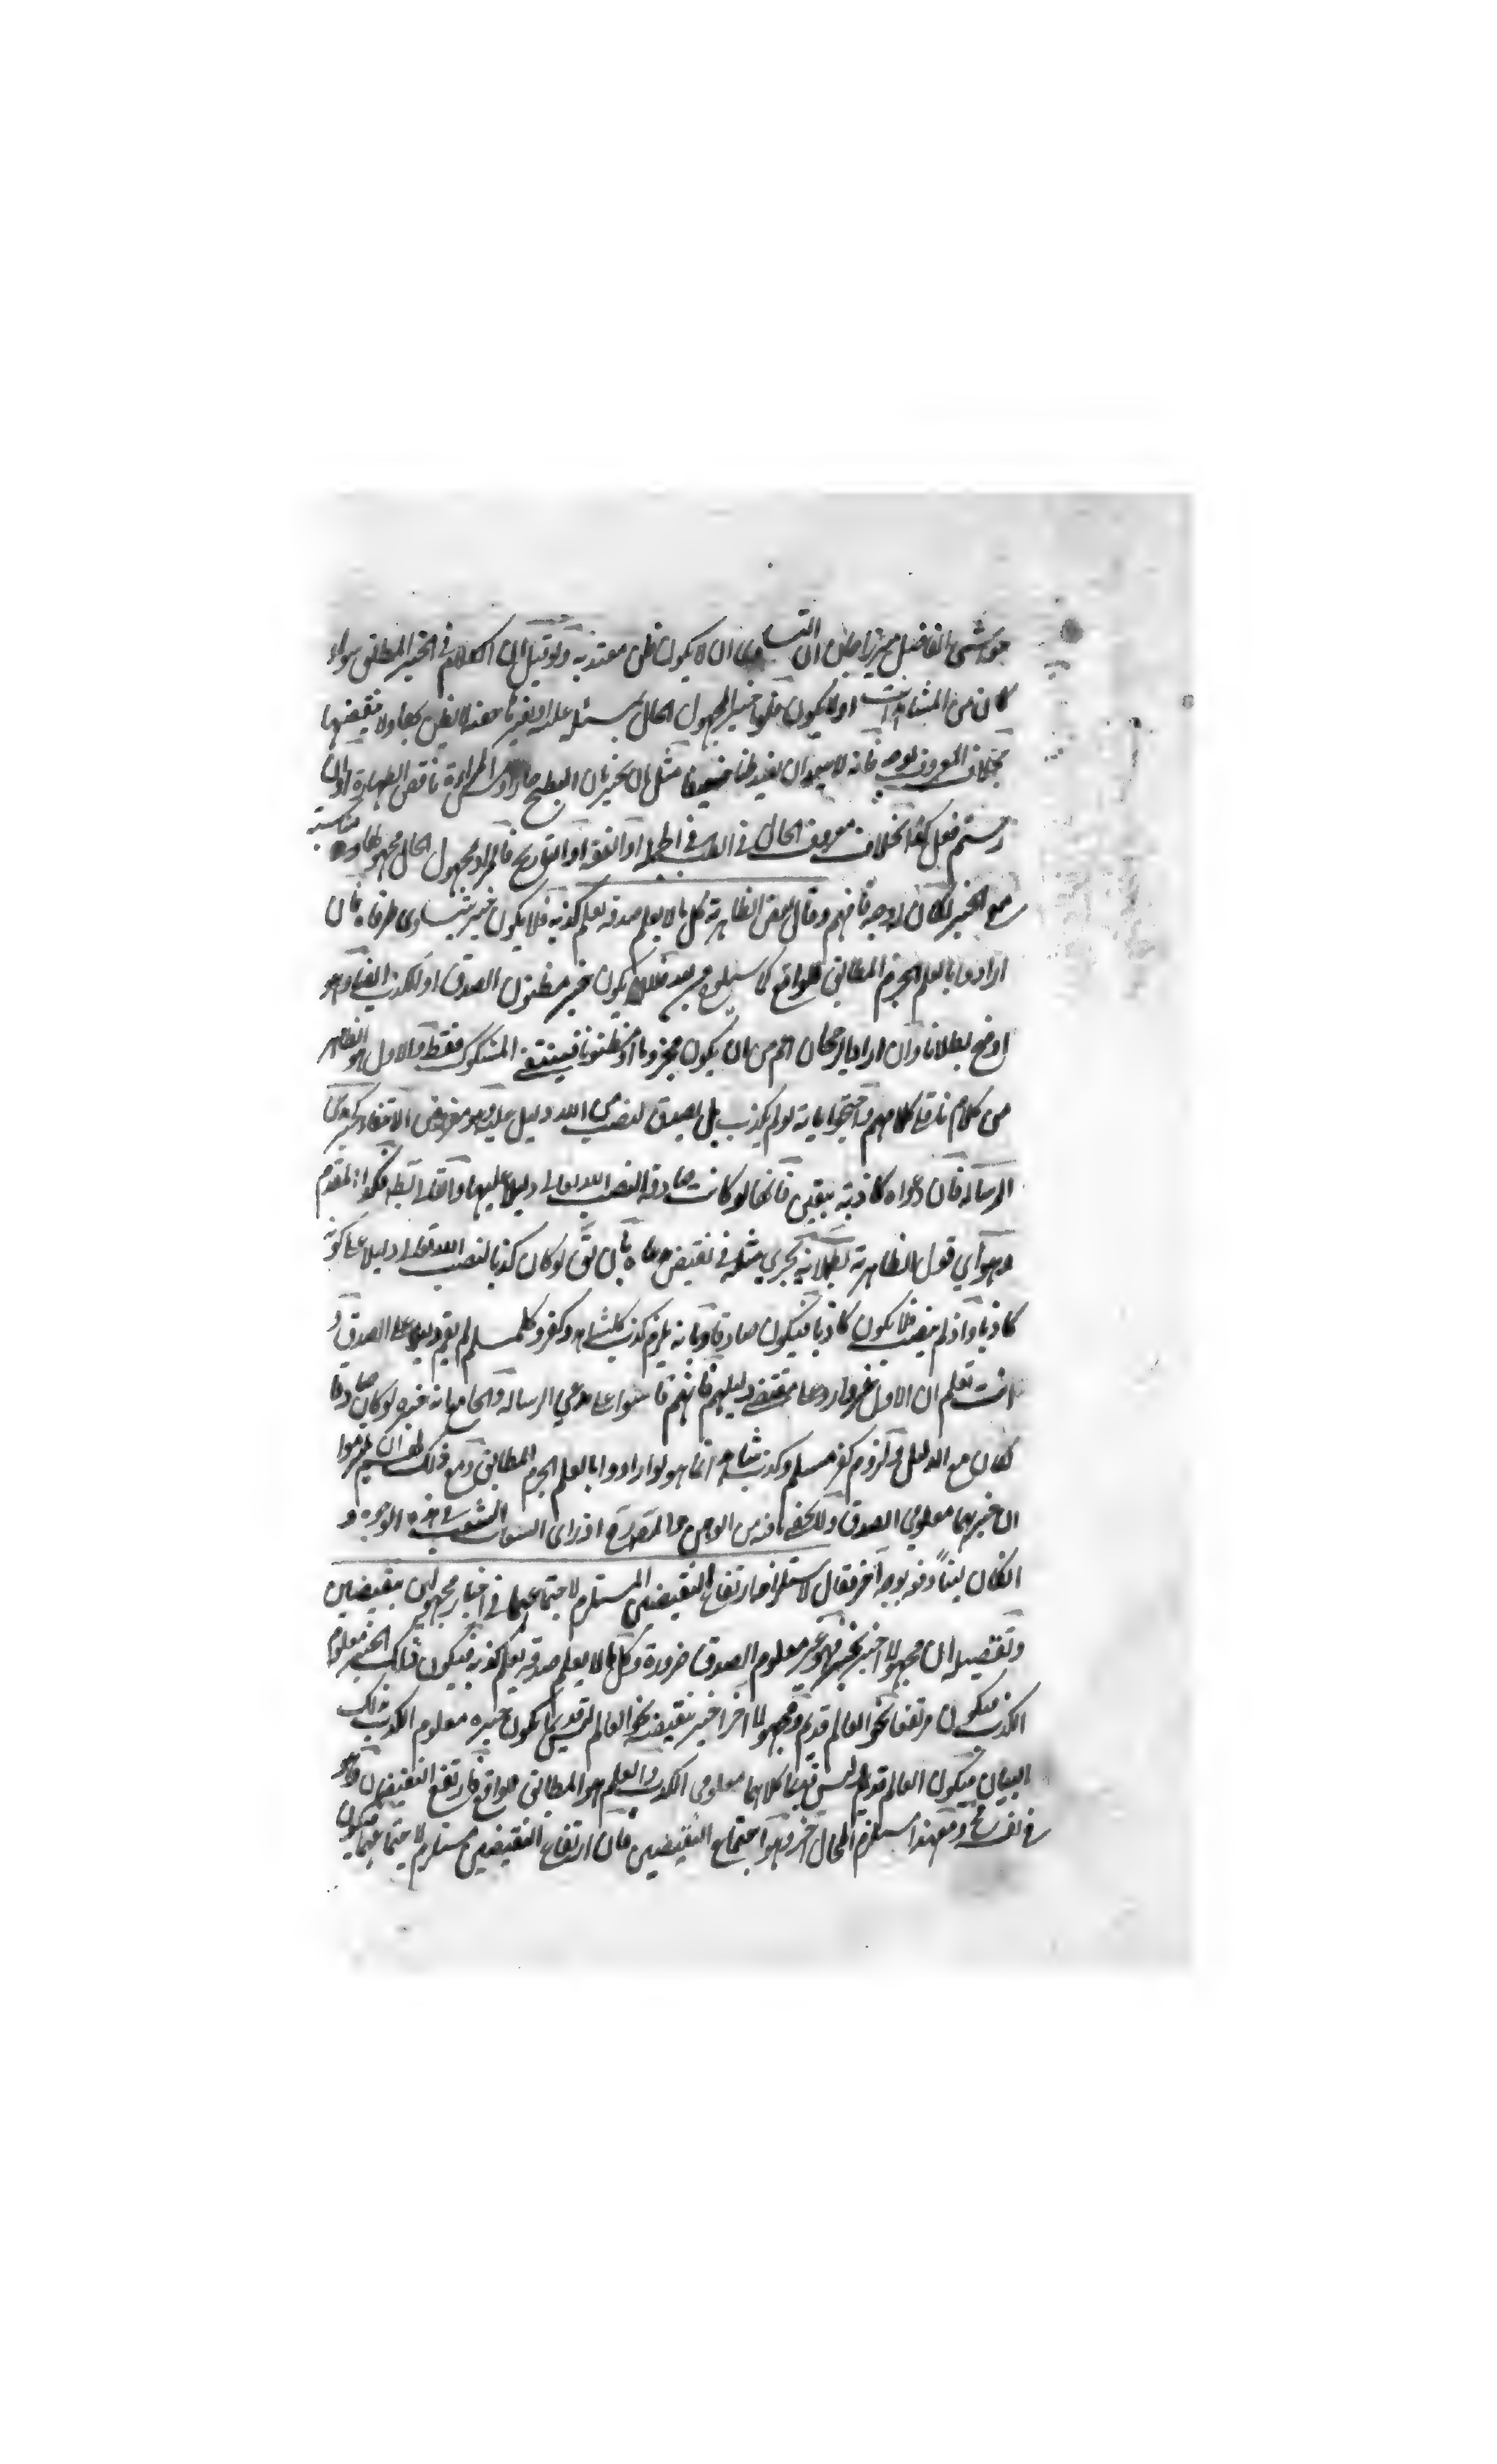 حواشي الفاضل ميرزا جان ان التساوي ان لا يكون ظن معتد به ولو قيل ان الكلام في الخبر المطلق سواء
كان من المشاهدات او لا يكون خبر المجهول الحال بمسئلة علمية او بغيرها معتدا لا يظن بها ولا بنقيضها
بخلاف المعروف بوجه فانه لا يبعد ان يفيد ظنا ضعيفا مثل ان يخبر بان البطيخ حار او مس المرأة ناقض الطهارة او ان
رستم فعل كذا بخلاف معروف الحال في الطب او الفقه او التاريخ فالمراد بمجهول الحال مجهولها ومناسبته
مع الخبر لكان له وجه فافهم وقال بعض الظاهرية كل ما لا يعلم صدقه يعلم كذبه فلا يكون خبر يتساوى طرفاه فان
ارادوا بالعلم الجزم المطابق للواقع كما سيلوح من بعد فلا يكون خبر مظنون الصدق او الكذب ايضا وهو
اوضح بطلانا وان ارادوا الرجحان اعم من ان يكون مجزوما او مظنونا فينتفي المشكوك فقط والاول هو الظاهر
من كلام ناقلي كلامهم واحتجوا بانه لو لم يكذب بل يصدق لنصب من الله دليل عليه وهو مفروض الانتفاء كخبر مدعي
الرسالة فان دعواه كاذبة بيقين فانها لو كانت صادقة لنصب الله تعالى دليلا عليها والتالي بط فكذا المقدم
وهو اي قول الظاهرية بطلانه يجري مثله في نقيض مدعاه بان يقال لو كان كذبا لنصب الله تعالى دليلا على كونه
كاذبا واذ لم ينصب فلا يكون كاذبا فيكون صادقا وبانه يلزم كذب كل شاهد وكفر كل مسلم لم يقم دليل على الصدق و
انت تعلم ان الاول غير وارد على مقتضى دليلهم فانهم قاسوا على مدعي الرسالة والجامع انه خبر لو كان صادقا
لكان مع الدليل ولزوم كفر مسلم وكذب شاهد انما هو لو ارادوا بالعلم الجزم المطابق ومع ذلك لهم ان يلتزموا
ان خبرهما معلومي الصدق ولا يخفى ما فيه من الوهن والمصنف اذ رأى الشغب في هذه الوجوه و
ان كان بينا دفعه بوجه آخر فقال لاستلزامه ارتفاع النقيضين المستلزم لاجتماعهما في اخبار مجهولين بنقيضين
وتفصيله ان مجهولا اخبر بخبر فهو غير معلوم الصدق ضرورة وكل ما لا يعلم صدقه يعلم كذبه فيكون ذلك الخبر معلوم
الكذب فيكون مرتفعا نحو العالم قديم ومجهولا آخر اخبر بنقيضه نحو العالم ليس بقديم فيكون خبره معلوم الكذب بذلك
البيان فيكون العالم قديم وليس بقديم كلاهما معلومي الكذب والعلم هو المطابق للواقع فارتفع النقيضان وهو
في نفسه مح ومع هذا استلزم المحال الاخر وهو اجتماع النقيضين فان ارتفاع النقيضين مستلزم لاجتماعهما فيكون